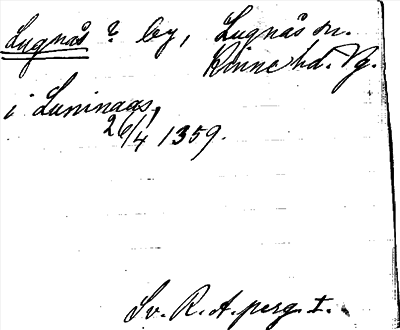 Lugnås ? by, Lugnås sn.
Kinne hd. Vg.
i Luninaas,
26/4 1359.
Sv. R. A. perg. I.